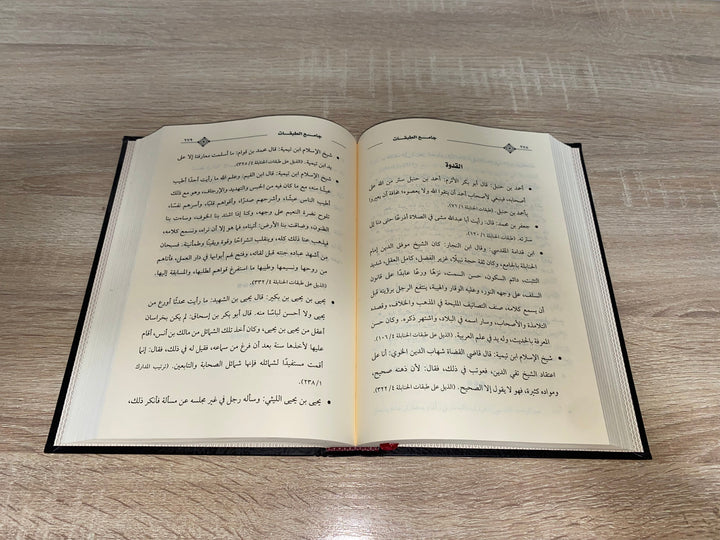 جامـــع الطبقـــات
٢٧٨
القدوة
• أحمد بن حنبل: قال أبو بكر الأثرم: أحمد بن حنبل ستر من الله على
أصحابه، فينبغي لأصحاب أحمد أن يتقوا الله ولا يعصوه؛ مخافة أن يعيروا
بأحمد بن حنبل. (طبقات الحنابلة
• جعفر بن محمد: قال: رأيت أبا عبدالله مشى في الصلاة أذرعًا حتى دنا إلى
سترته. (طبقات الحنابلة
• ابن قدامة المقدسي: وقال ابن النجار: كان الشيخ موفق الدين إمام
الحنابلة بالجامع، وكان ثقة حجة نبيلًا، غزير الفضل، كامل العقل، شديد
التثبت، دائم السكون، حسن السمت، نزهًا ورعًا عابدًا على قانون
السلف، على وجهه النور، وعليه الوقار والهيبة، ينتفع الرجل برؤيته قبل
أن يسمع كلامه، صنف التصانيف المليحة في المذهب والخلاف، وقصده
التلامذة والأصحاب، وسار اسمه في البلاد، واشتهر ذكره. وكان حسن
المعرفة بالحديث، وله يد في علم العربية. (الذيل على طبقات الحنابلة
• شيخ الإسلام ابن تيمية: قال قاضي القضاة شهاب الدين الخوي: أنا على
اعتقاد الشيخ تقي الدين، فعوتب في ذلك، فقال: لأن ذهنه صحيح،
ومواده كثيرة، فهو لا يقول إلا الصحيح. (الذيل على طبقات الحنابلة ٤/ ٣٢٢)
جامـــع الطبقـــات
٢٧٩
• شيخ الإسلام ابن تيمية: قال محمد بن قوام: ما أسلمت معارفنا إلا على
يد ابن تيمية. (الذيل على طبقات الحنابلة
• شيخ الإسلام ابن تيمية: قال ابن القيم: وعلم الله ما رأيت أحدًا أطيب
عيشًا منه، مع ما كان فيه من الحبس والتهديد والإرجاف، وهو مع ذلك
أطيب الناس عيشًا، وأشرحهم صدرًا، وأقواهم قلبًا، وأسرهم نفسًا،
تلوح نضرة النعيم على وجهه، وكنا إذا اشتد بنا الخوف، وساءت بنا
الظنون، وضاقت بنا الأرض: أتيناه، فما هو إلا أن نراه، ونسمع كلامه،
فيذهب عنا ذلك كله، وينقلب انشراحًا وقوة ويقينًا وطمأنينة. فسبحان
من أشهد عباده جنته قبل لقائه، وفتح لهم أبوابها في دار العمل، فأتاهم
من روحها ونسيمها وطيبها ما استفرغ قواهم لطلبها، والمسابقة إليها.
(الذيل على طبقات الحنابلة
• يحيى بن يحيى بن بكير: قال يحيى بن الشهيد: ما رأيت محدثًا أورع من
يحيى بن يحيى ولا أحسن لباسًا منه. قال أبو بكر بن إسحاق: لم يكن بخراسان
أعقل من يحيى بن يحيى، وكان أخذ تلك الشمائل من مالك بن أنس، أقام
عليها لأخذها سنة بعد أن فرغ من سماعه، فقيل له في ذلك، فقال: إنما
أقمت مستفيدًا لشمائله فإنها شمائل الصحابة والتابعين. (ترتيب المدارك
١/ ٢٣٨).
• يحيى بن يحيى الليثي: وسأله رجل في غير مجلسه عن مسألة فأنكر ذلك،